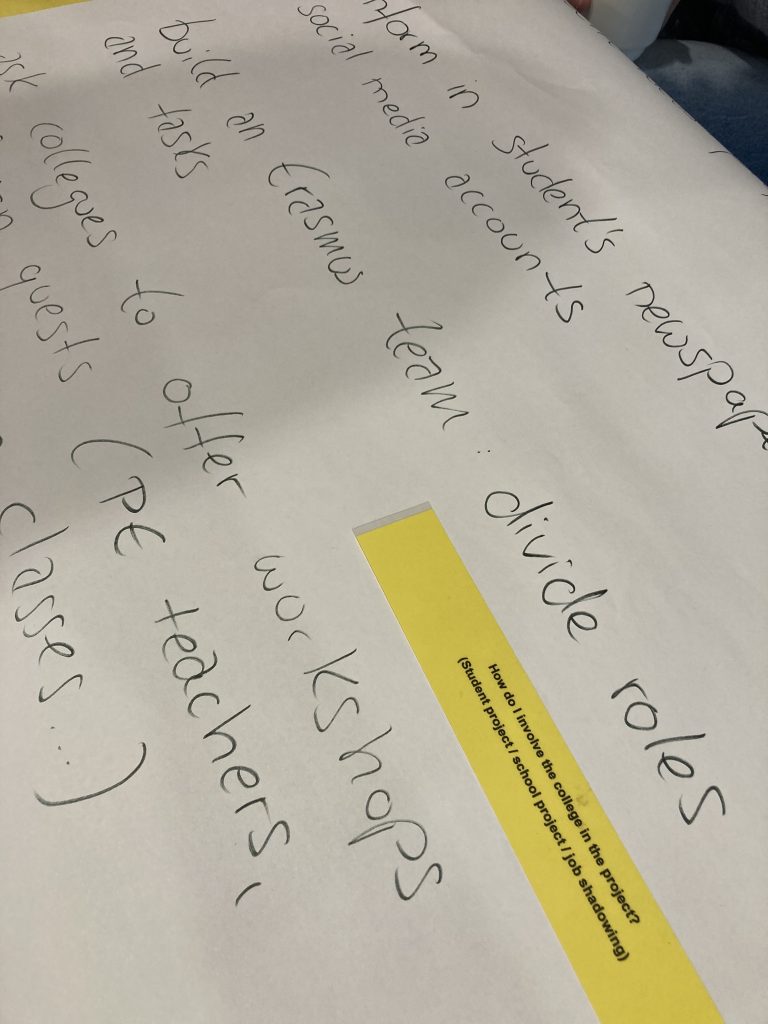 inform in student's newspape
social media accounts
build an Erasmus team: divide roles
and tasks
ask collegues to offer workshops
guests (PE teachers,
classes...)
How do I involve the college in the project?
(Student project / school project / job shadowing)